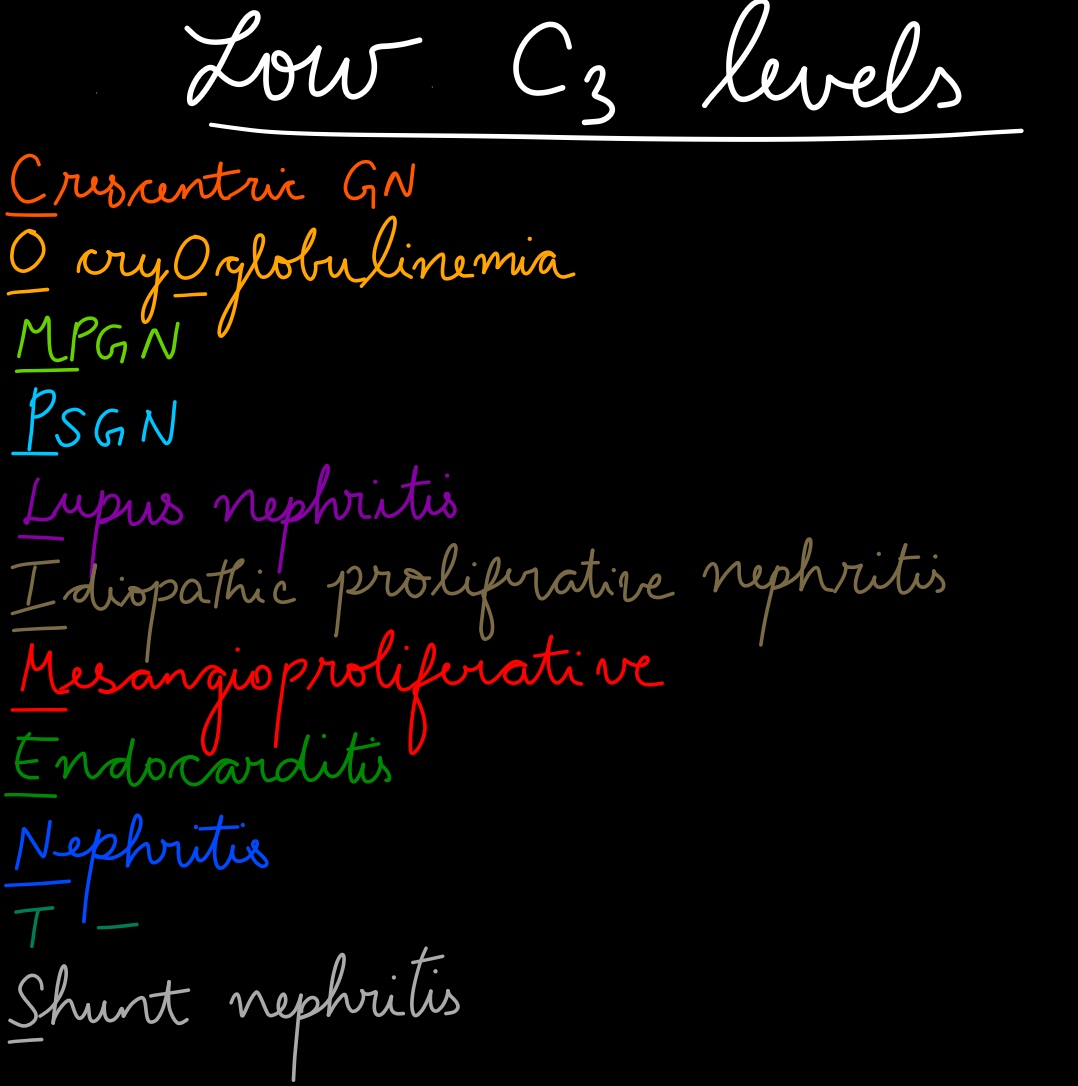 Low C3 levels
Crescentric GN
O cryOglobulinemia
MPGN
PSGN
Lupus nephritis
Idiopathic proliferative nephritis
Mesangioproliferative
Endocarditis
Nephritis
T -
Shunt nephritis